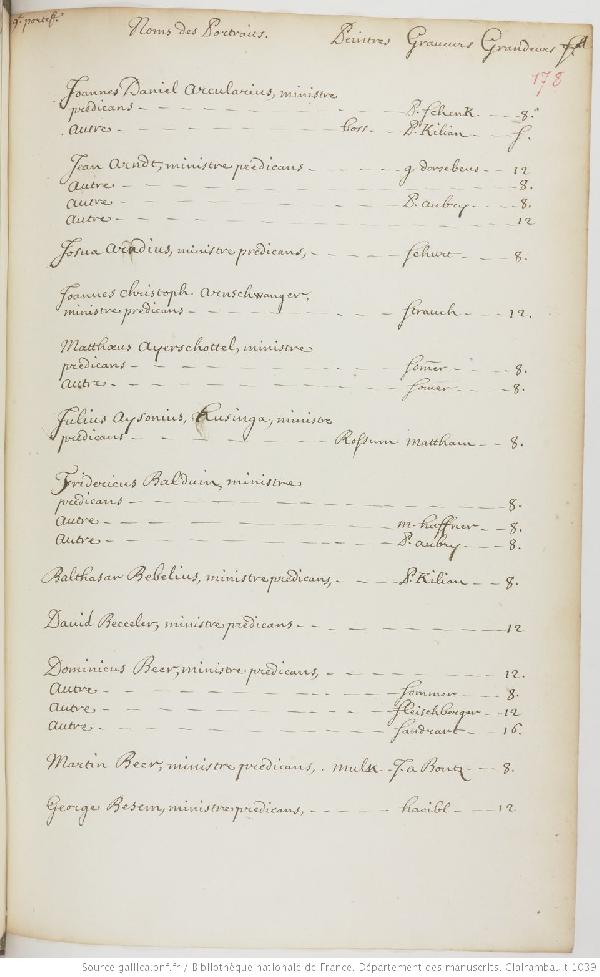 Noms des Portraits. Peintres Graveurs Grandeurs
178
Joannes Daniel Arcularius, ministre
prédicans - P. Schenk - 8.
autre - boss - P. Kilian - f.
Jean Arndt, ministre prédicans - g. dorsebeus - 12
autre - 8.
autre - P. aubry - 8.
autre - 12
Josua Arndius, ministre prédicans, - Schurt - 8.
Joannes Christoph. Arnschwanger,
ministre prédicans - Strauch - 12.
Matthæus Ayerschottel, ministre
prédicans - Som̃er - 8.
autre - Somer - 8.
Julius Aysonius, Husinga, ministre
prédicans - Rossum Mattham - 8.
Fridericus Balduin, ministre
prédicans - 8.
autre - m. haffner - 8.
autre - P. aubry - 8.
Balthasar Bebelius, ministre prédicans, - P. Kilian - 8.
David Becceler, ministre prédicans - 12
Dominicus Beer, ministre prédicans, - 12.
autre - Sommer - 8.
autre - fleischberger - 12
autre - Sandrart - 16.
Martin Beer, ministre prédicans, . mulk - J. a Bourg - 8.
George Besem, ministre prédicans, - 12
Source gallica.bnf.fr / Bibliothèque nationale de France. Département des manuscrits. Clairambault 1039